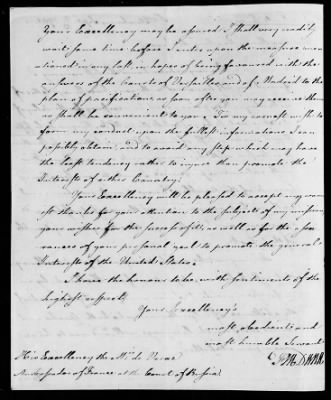 Your Excellency may be assured I shall very readily
wait some time before I enter upon the measure men-
tioned in my last, in hopes of being favoured with the
answers of the Courts of Versailles and of Madrid to the
plan of pacification, as soon after you may receive them
as shall be convenient to you. For my earnest wish is to
form my conduct upon the fullest informations I can
possibly obtain, and to avoid any step which may have
the least tendency rather to injure than promote the
Interests of either Country.
Your Excellency will be pleased to accept my war-
mest thanks for your attention to the subject of my mission
your wishes for the success of it, as well as for the assu-
rances of your personal zeal to promote the general
Interests of the United States.
I have the honour to be, with sentiments of the
highest respect,
Your Excellency's
most obedient and
most humble Servant
His Excellency the Ms. de Verac
Ambassador of France at the Court of Russia.